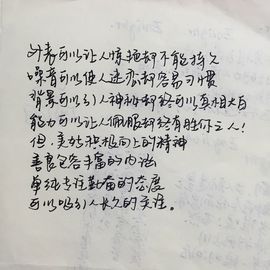 外表可以让人惊艳却不能持久
噪音可以使人迷恋却容易习惯
背景可以引人神秘却终可以真相大白
能力可以让人佩服却终有胜你之人！
但，美好积极向上的精神
善良包容丰富的内涵
单纯专注勤奋的态度
可以吸引人长久的关注。